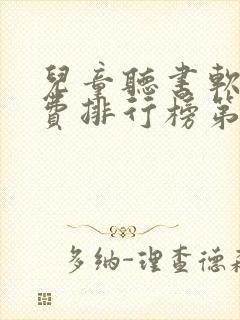 兒童聽書軟
費排行榜第
多纳-理查德森